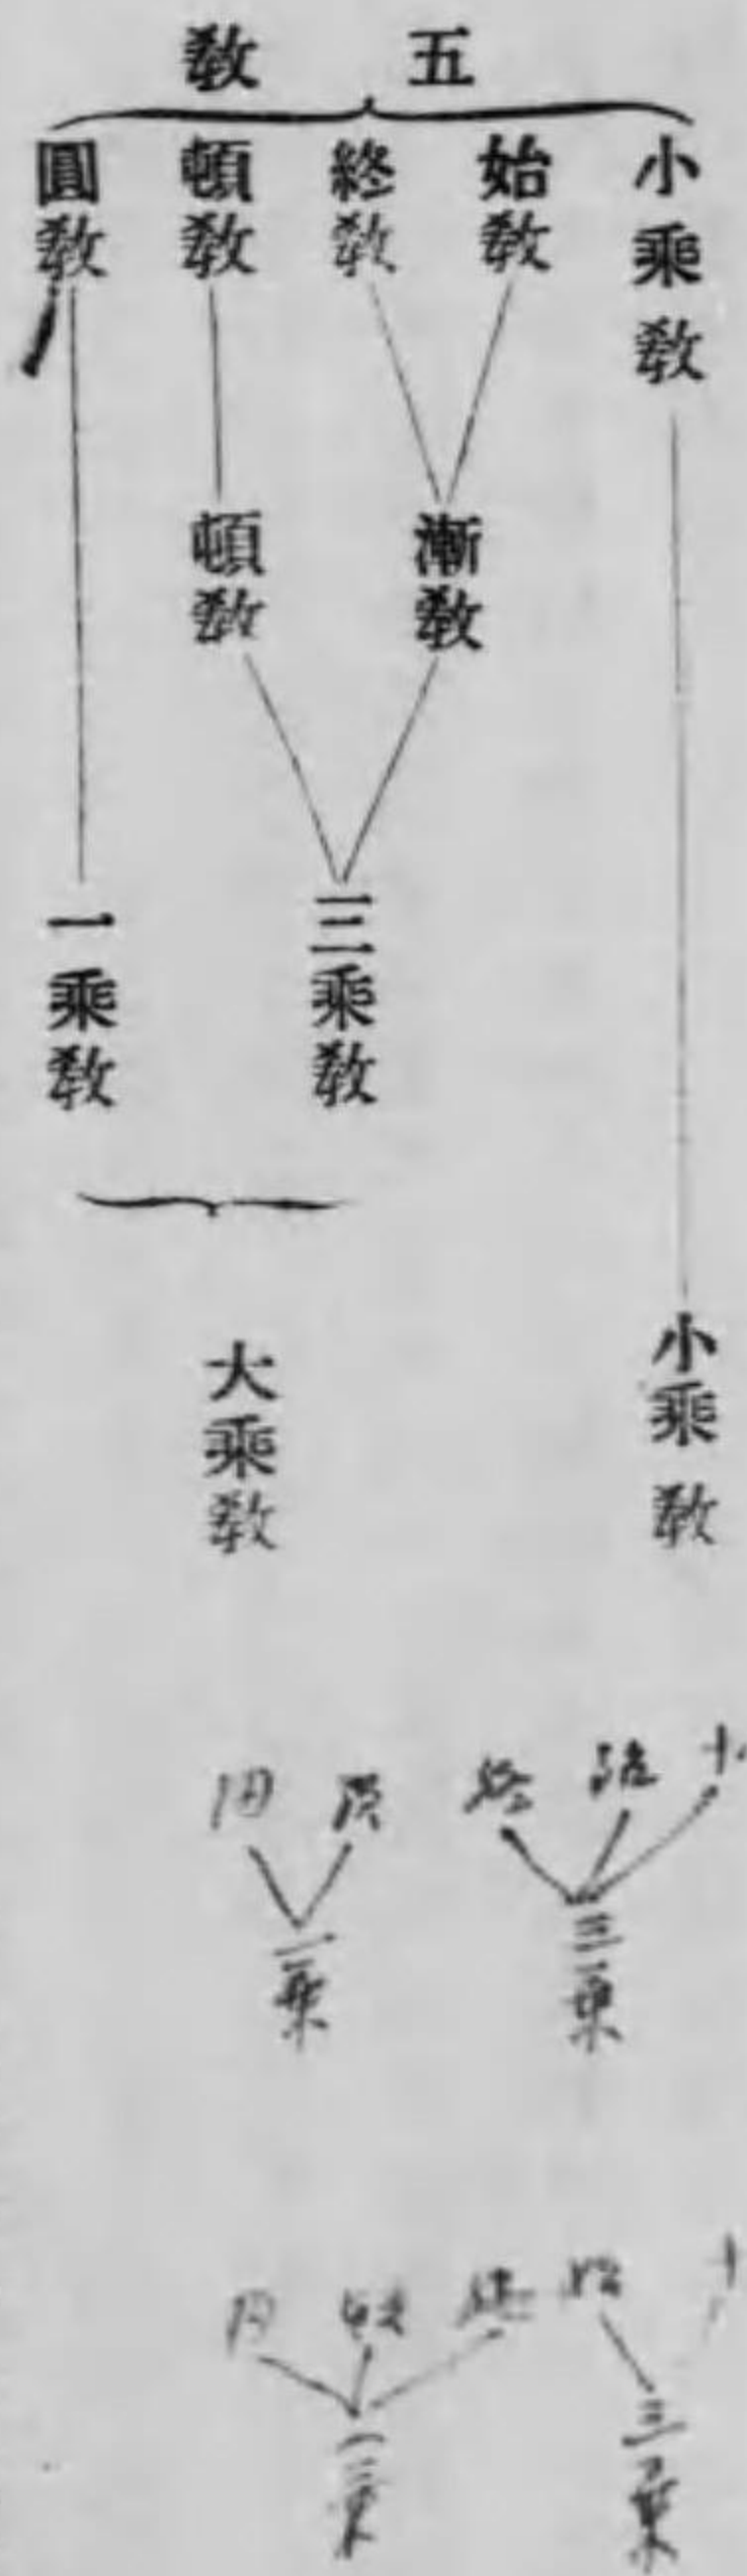 五教
小乘教
始教
終教
頓教
圓教
漸教
頓教
三乘教
一乘教
小乘教
大乘教
小
始
終
頓
円
三乘
一乘
小
始
終
頓
円
三乘
一乘